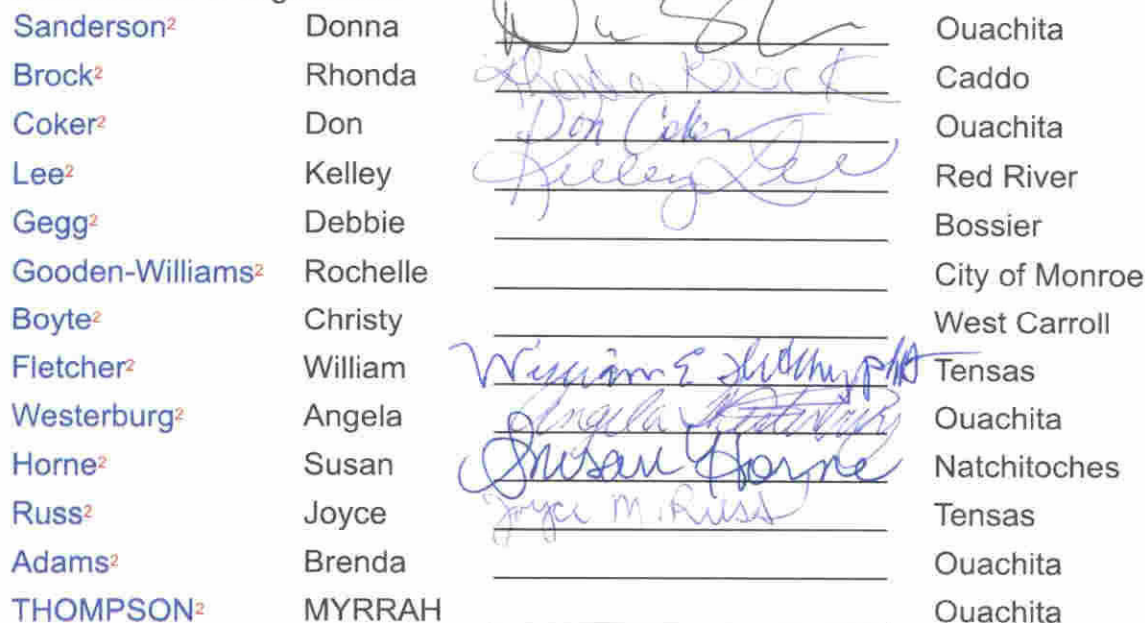 Sanderson² Donna Ouachita
Brock² Rhonda Rhonda Brock Caddo
Coker² Don Don Coker Ouachita
Lee² Kelley Kelley Lee Red River
Gegg² Debbie Bossier
Gooden-Williams² Rochelle City of Monroe
Boyte² Christy West Carroll
Fletcher² William William E Tensas
Westerburg² Angela Angela Westerburg Ouachita
Horne² Susan Susan Horne Natchitoches
Russ² Joyce Joyce M. Russ Tensas
Adams² Brenda Ouachita
THOMPSON² MYRRAH Ouachita